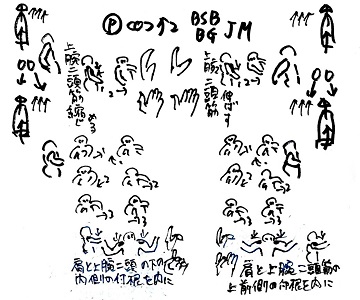 Ⓟ
BSB
BG JM
上腕二頭筋縮じめる
上腕二頭筋
伸ばす
肩と上腕二頭の下の
内側の付根を内に
肩と上腕二頭筋の
上前側の付根を内に